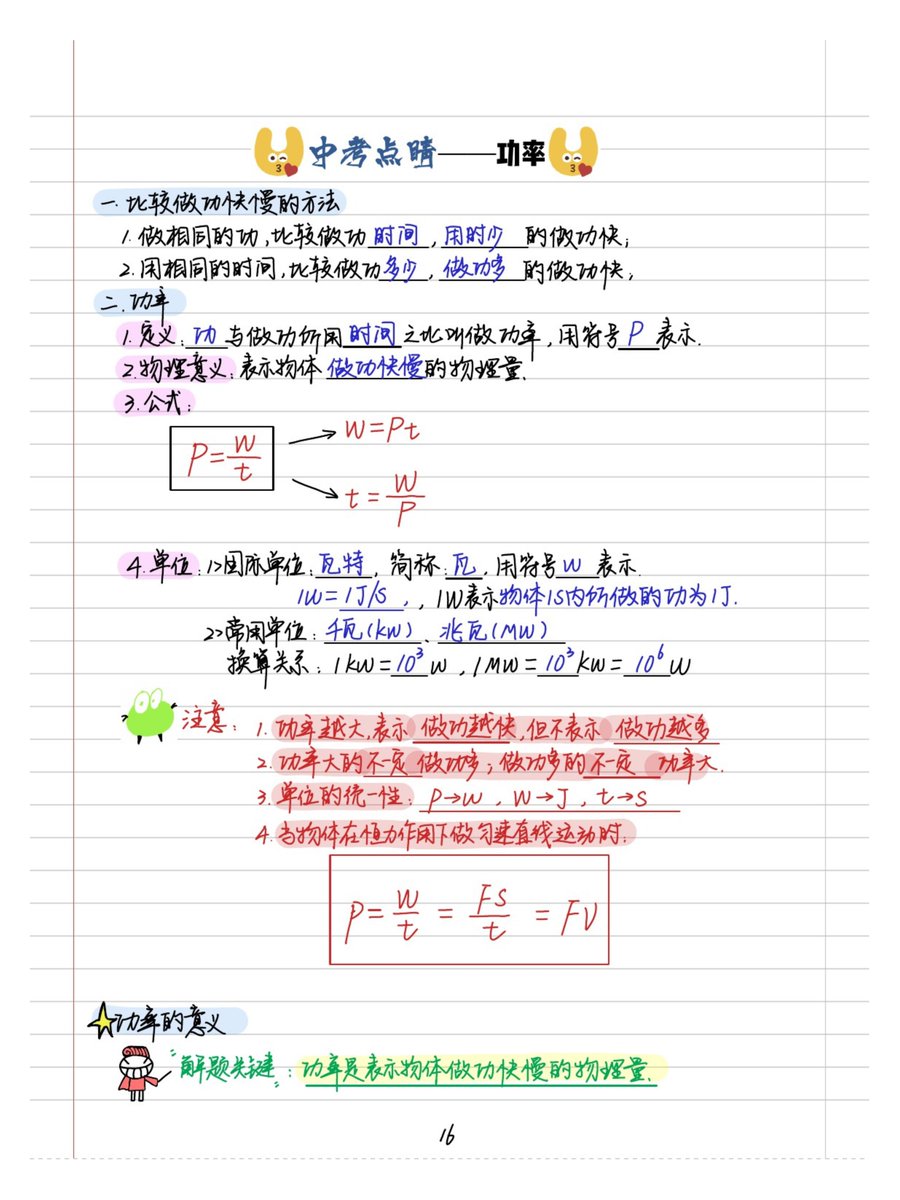 中考点睛——功率
一.比较做功快慢的方法
1.做相同的功,比较做功时间,用时少的做功快;
2.用相同的时间,比较做功多少,做功多的做功快;
二.功率
1.定义:功与做功所用时间之比叫做功率,用符号P表示.
2.物理意义:表示物体做功快慢的物理量.
3.公式:
P=W/t
W=Pt
t=W/P
4.单位:1>国际单位:瓦特,简称:瓦,用符号W表示.
1W=1J/S,,1W表示物体1S内所做的功为1J.
2>常用单位:千瓦(kW)、兆瓦(MW)
换算关系:1kW=10³W,1MW=10³kW=10⁶W
注意:1.功率越大,表示做功越快,但不表示做功越多
2.功率大的不一定做功多;做功多的不一定功率大.
3.单位的统一性:P→W,W→J,t→S
4.当物体在恒力作用下做匀速直线运动时.
P=W/t=FS/t=FV
功率的意义
"解题关键":功率是表示物体做功快慢的物理量.
16